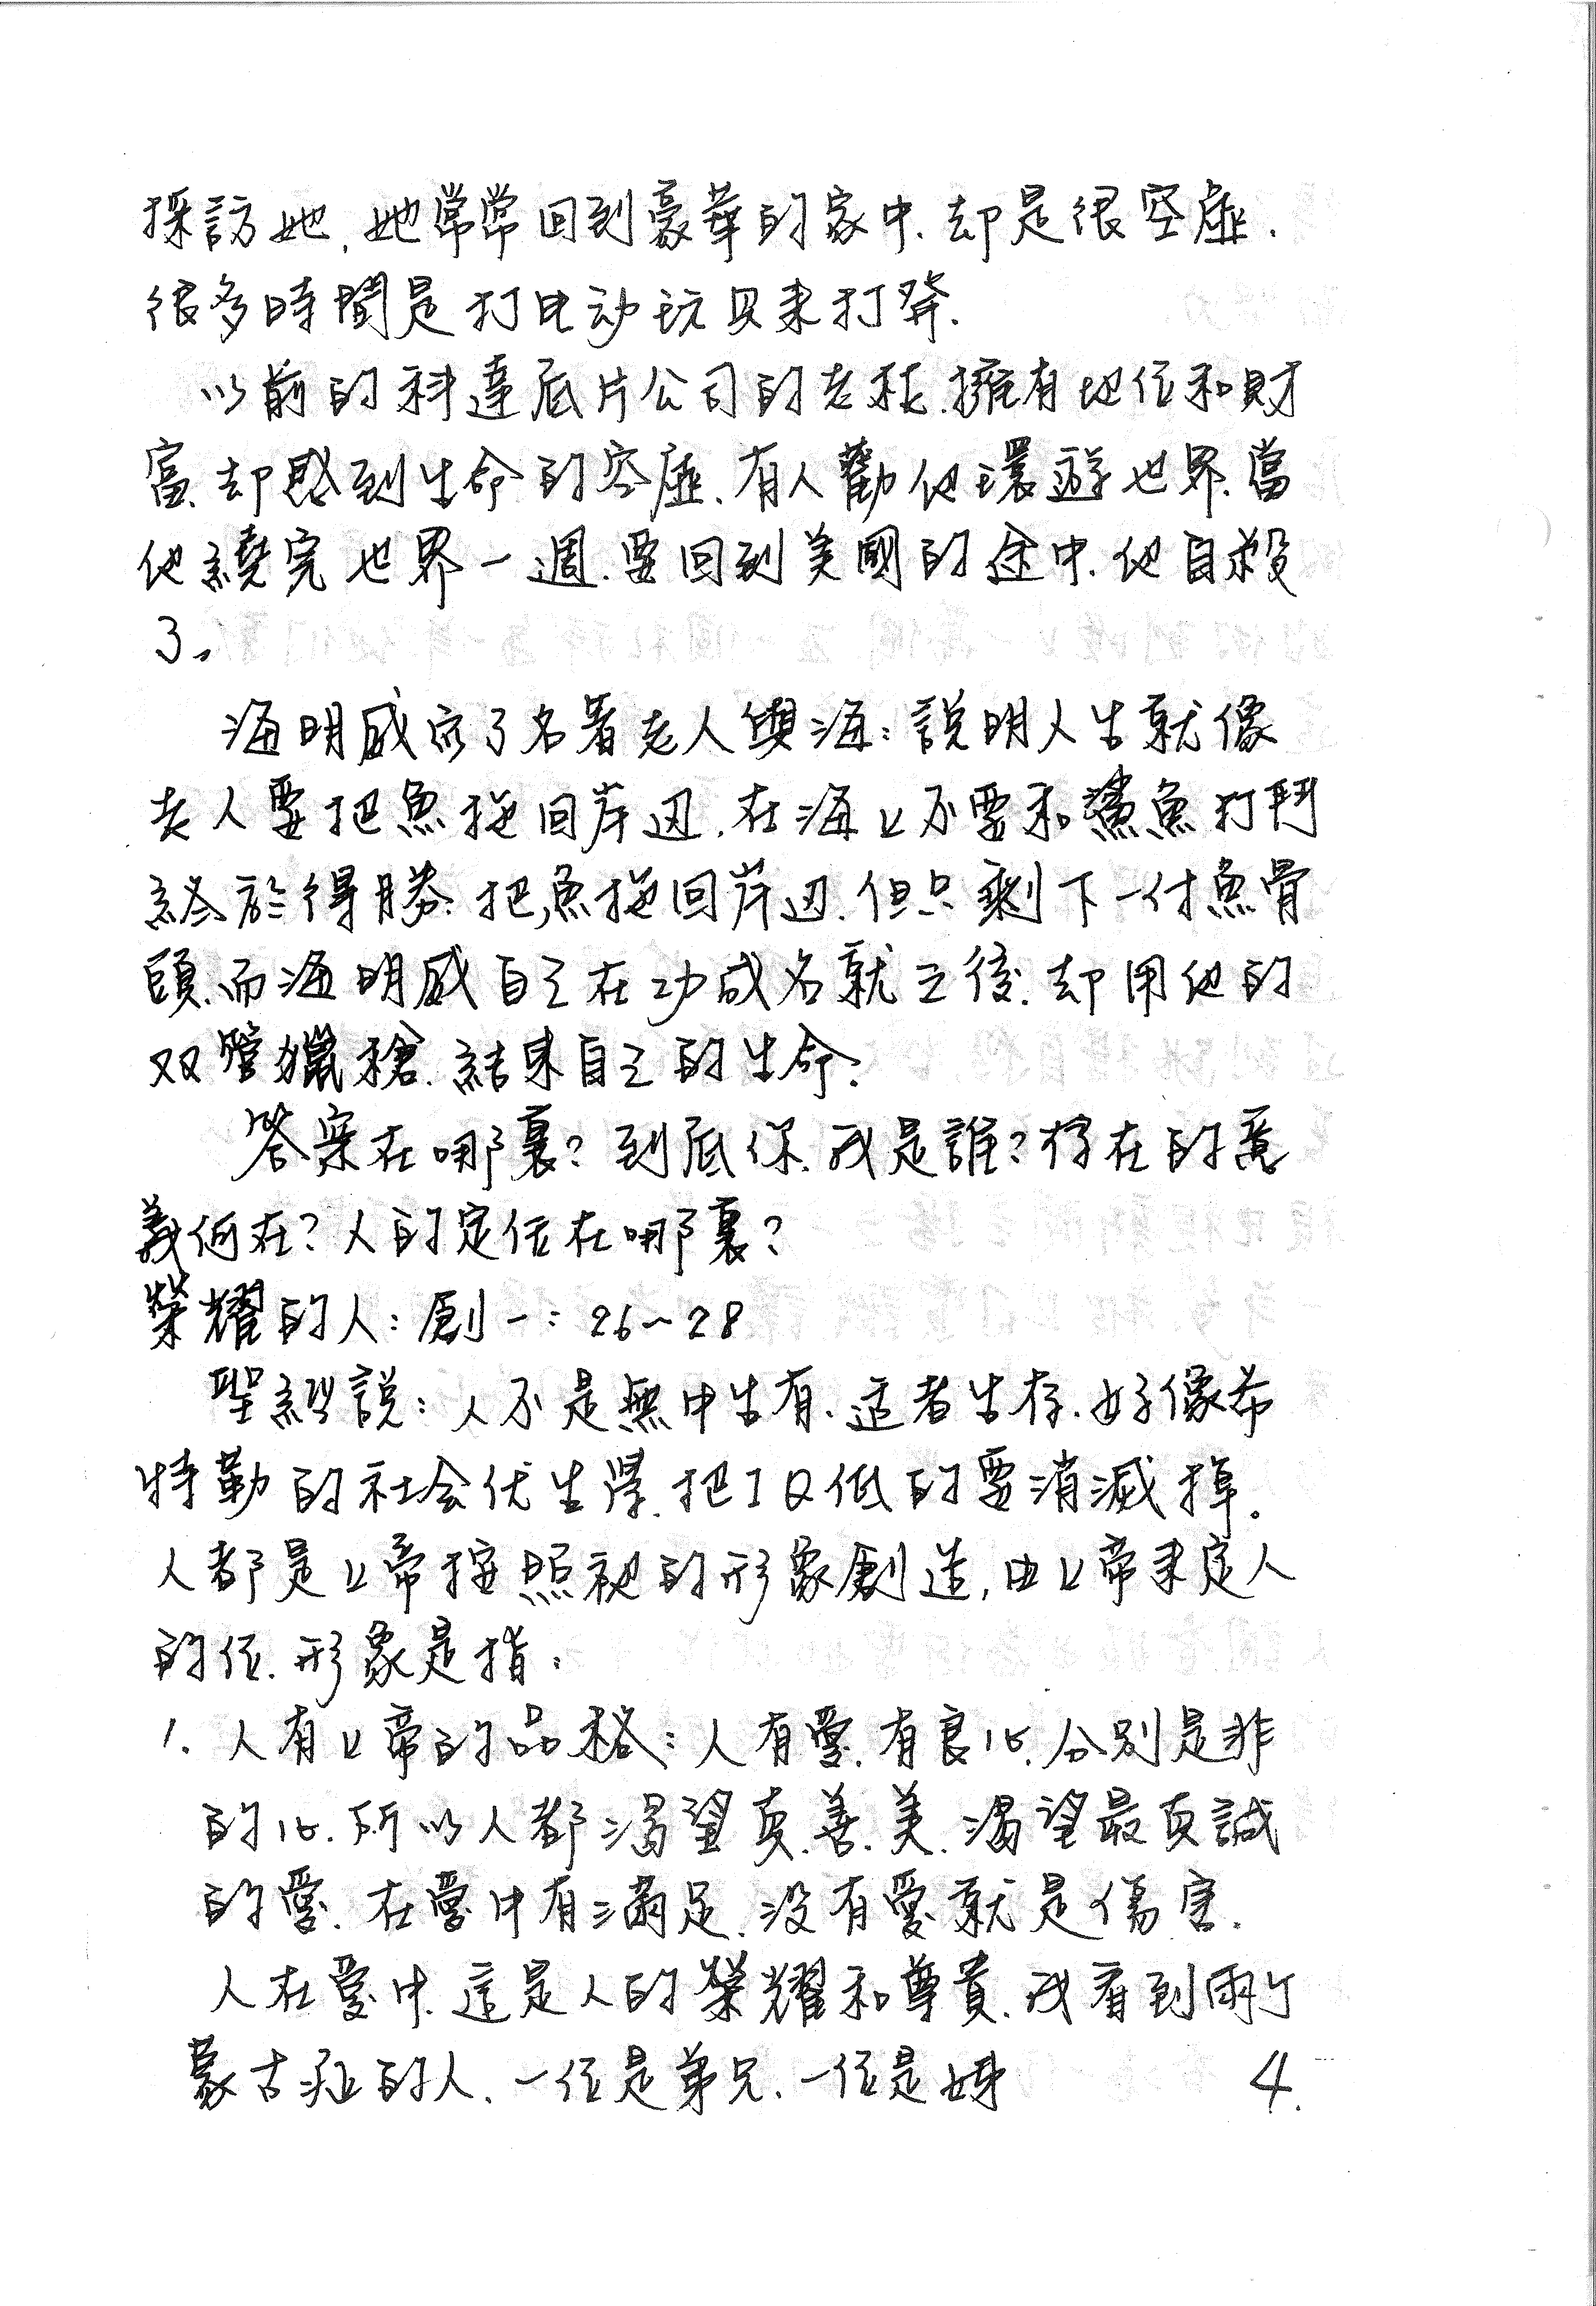 採訪她,她常常回到豪華的家中.却是很空虛.
很多時間是打电动玩具来打發.
以前的科達底片公司的老板.擁有地位和財
富.却感到生命的空虛.有人勸他環遊世界.當
他繞完世界一週.要回到美國的途中.他自殺
了。
海明威寫了名著老人與海:說明人生就像
老人要把魚拖回岸边.在海上不要和鯊魚打鬥
終於得勝.把魚拖回岸边.但只剩下一付魚骨
頭.而海明威自己在功成名就之後.却用他的
双管獵槍.結束自己的生命.
答案在哪裏?到底你.我是誰?存在的意
義何在?人的定位在哪裏?
榮耀的人:創一:26~28
聖經說:人不是無中生有.适者生存.好像希
特勒的社会优生學.把IQ低的要消滅掉。
人都是上帝按照祂的形象創造,由上帝来定人
的位.形象是指:
1.人有上帝的品格:人有愛.有良心.分別是非
的心.所以人都渴望真.善.美.渴望最真誠
的愛.在愛中有滿足.沒有愛就是傷害.
人在愛中.這是人的榮耀和尊貴.我看到兩个
蒙古症的人.一位是弟兄.一位是姊
4.